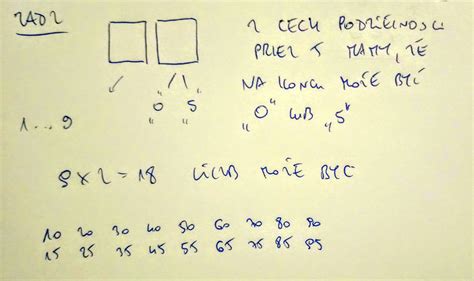 ZAD 2
Z CECH PODZIELNOŚCI
PRZEZ 5 MAMY, ŻE
NA KOŃCU MOŻE BYĆ
„0” LUB „5”
„0” „5”
1...9
9 x 2 = 18 LICZB MOŻE BYĆ
10 20 30 40 50 60 70 80 90
15 25 35 45 55 65 75 85 95